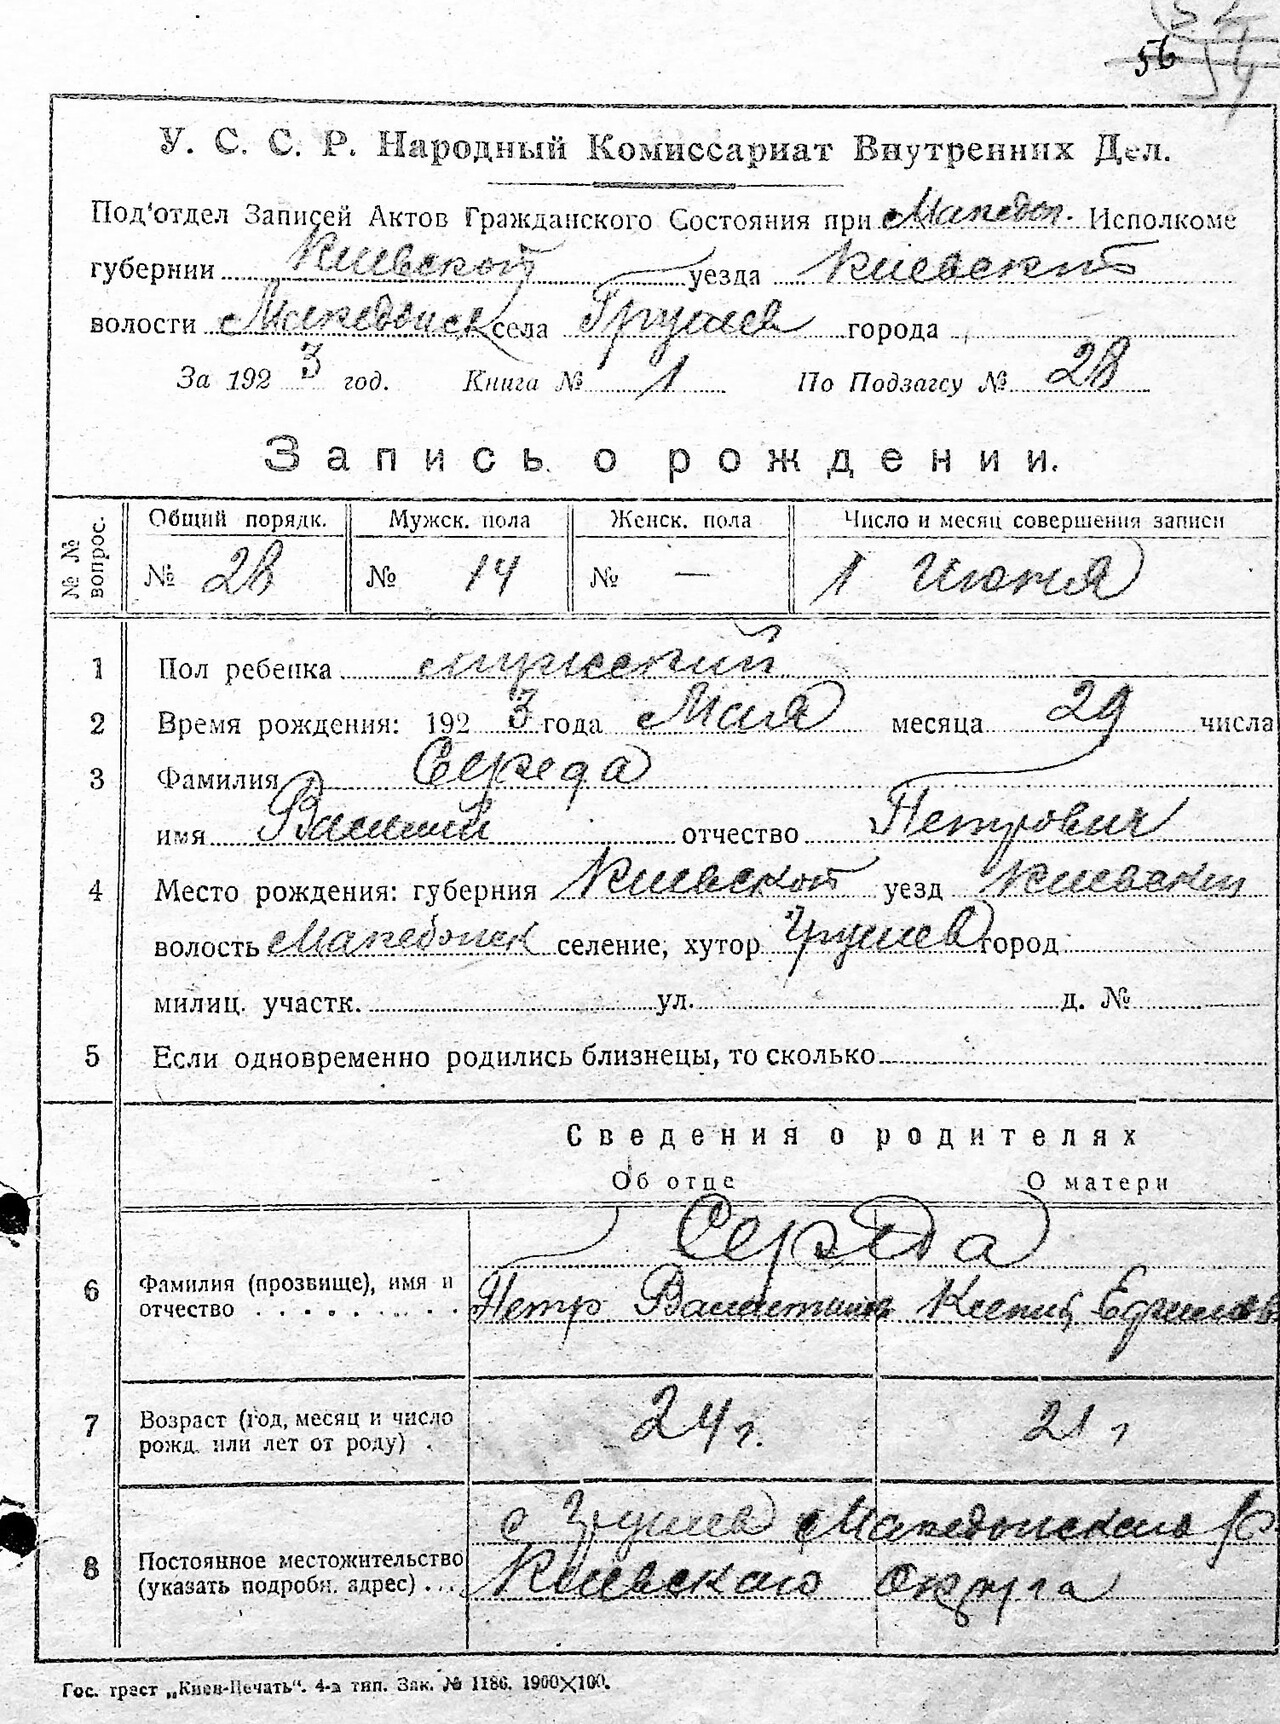 56
У. С. С. Р. Народный Комиссариат Внутренних Дел.
Под'отдел Записей Актов Гражданского Состояния при Македон. Исполкоме
губернии Киевской уезда Киевский
волости Македонск села Грушев города
За 1923 год. Книга № 1 По Подзагсу № 28
Запись о рождении.
№ № вопрос.
Общий порядк. Мужск. пола Женск. пола Число и месяц совершения записи
№ 28 № 14 № — 1 Июня
1 Пол ребенка мужеский
2 Время рождения: 1923 года Мая месяца 29 числа
3 Фамилия Середа
имя Василий отчество Петрович
4 Место рождения: губерния Киевской уезд Киевский
волость Македонск селение, хутор Грушев город
милиц. участк. ул. д. №
5 Если одновременно родились близнецы, то сколько
Сведения о родителях
Об отце О матери
Середа
6 Фамилия (прозвище), имя и
отчество . . . . . . . . . Петр Ксения
7 Возраст (год, месяц и число
рожд. или лет от роду) . 24 г. 21 г
с Грушев Македонского
8 Постоянное местожительство
(указать подробн. адрес) . . . Киевского округа
Гос. трест „Киев-Печать“. 4-я тип. Зак. № 1186. 1900X100.